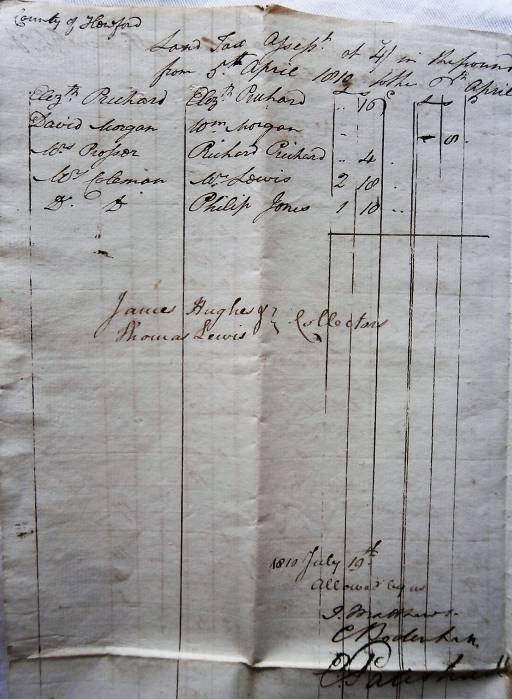 County of Hereford
Land Tax Assesst. at 4/ in the pound
from 5th April 1810 to the 5th April
Elizth Prichard Elizth Prichard .. 16
David Morgan Wm Morgan 1 8 .
Mrs Prosser Richard Prichard .. 4 .
Mr Coleman Mr Lewis 2 18 .
Do. Do Philip Jones 1 10 ..
James Hughes &
Thomas Lewis } Collectors
1810 July 19th
Allowed by us
J. Matthews
C Bodenham